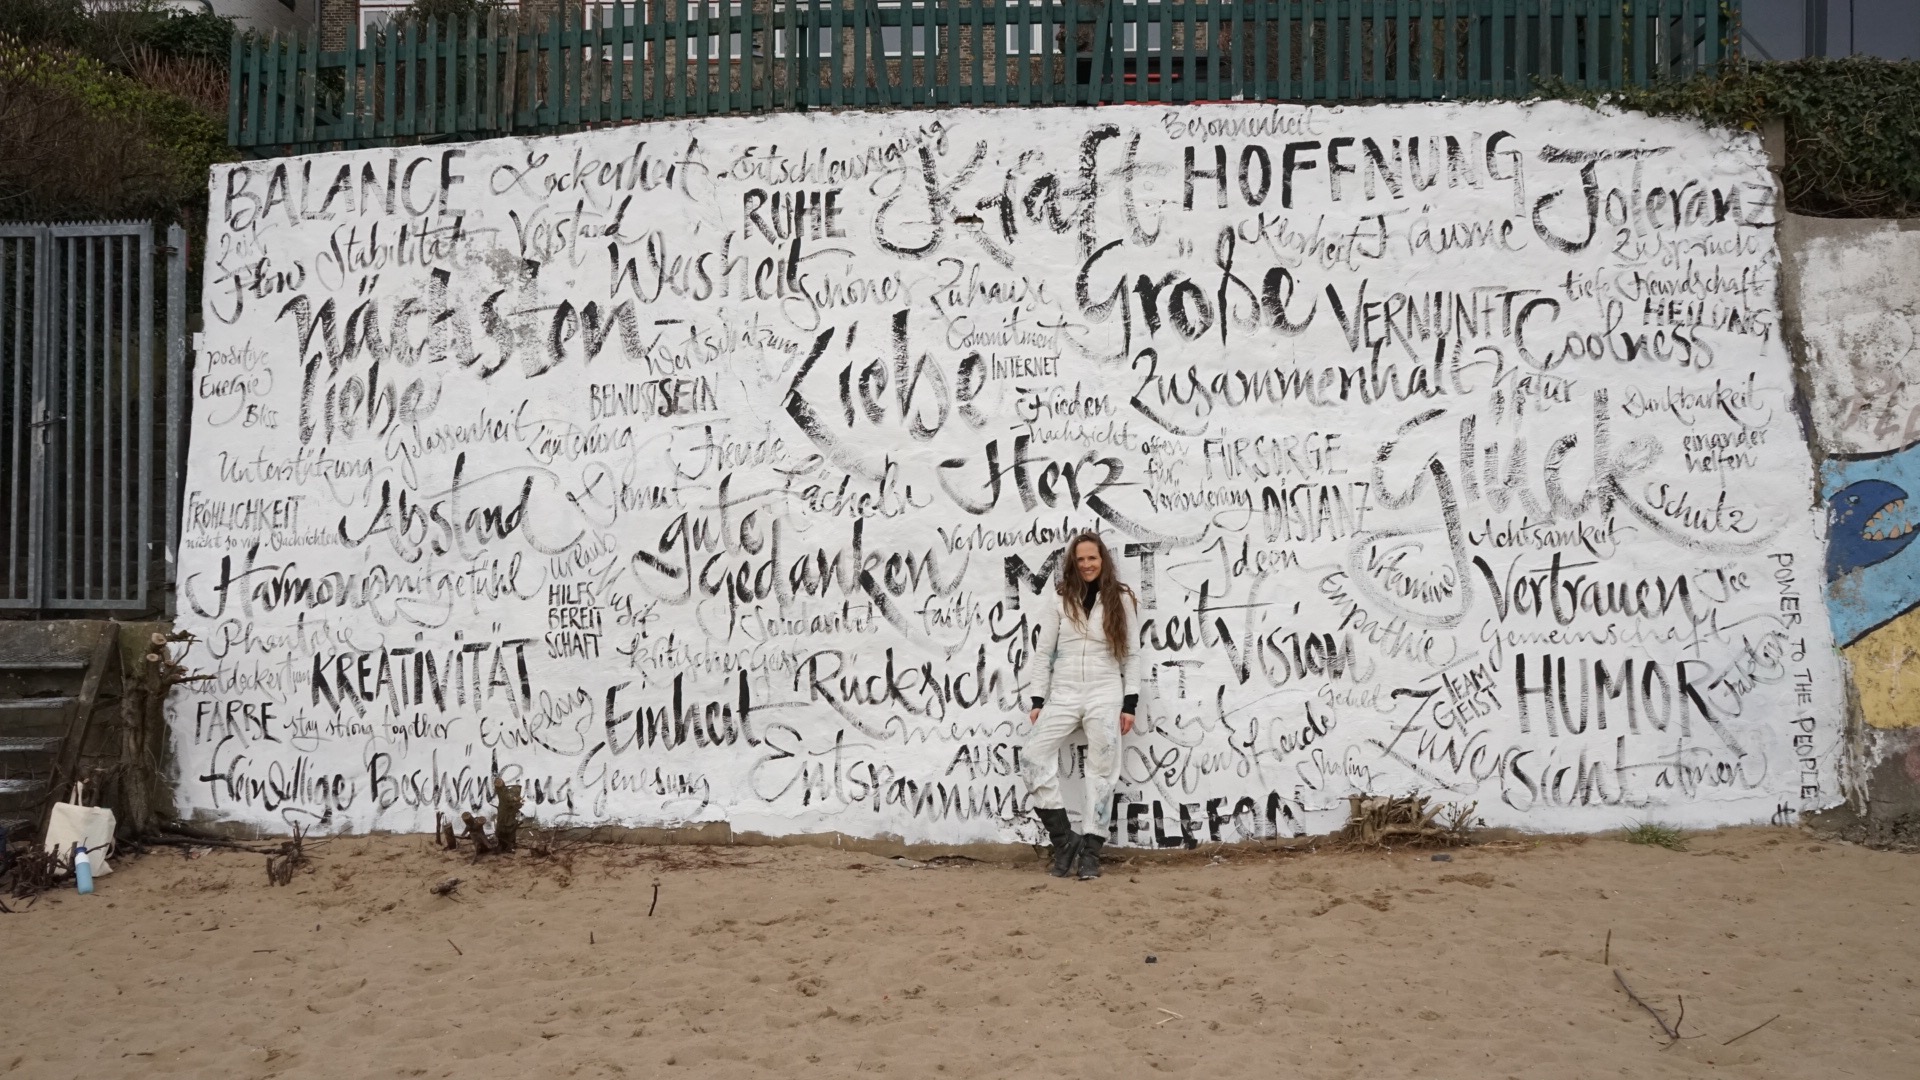 BALANCE
Lockerheit
Entschleunigung
RUHE
Kraft
Besonnenheit
HOFFNUNG
Toleranz
Zeit
Flow
Stabilität
Verstand
Weisheit
schönes Zuhause
Klarheit
Träume
Zuspruch
Größe
tiefe Freundschaft
HEILUNG
nächsten
liebe
Wertschätzung
Liebe
Commitment
INTERNET
VERNUNFT
Coolness
positive
Energie
Bliss
BEWUSTSEIN
Frieden
Zusammenhalt
Natur
Dankbarkeit
Gelassenheit
Läuterung
Freude
Nachsicht
Herz
offen
für
Veränderung
FÜRSORGE
DISTANZ
Glück
einander
helfen
Unterstützung
Demut
Lächeln
Schutz
FRÖHLICHKEIT
nicht so viel Nachrichten
Abstand
gute
Gedanken
Verbundenheit
Ideen
Achtsamkeit
Harmonie
mitgefühl
Urlaub
HILFS
BEREIT
SCHAFT
Musik
Solidarität
faith
Empathie
Vitamine
Vertrauen
Tee
Phantasie
KREATIVITÄT
kritischer Geist
Vision
Gemeinschaft
Entdeckertum
Rücksicht
TEAM
GEIST
HUMOR
FARBE
stay strong together
Einklang
Einheit
Geduld
Zuversicht
Lebensfreude
Sharing
atmen
Freiwillige Beschränkung
Genesung
Entspannung
TELEFON
POWER TO THE PEOPLE